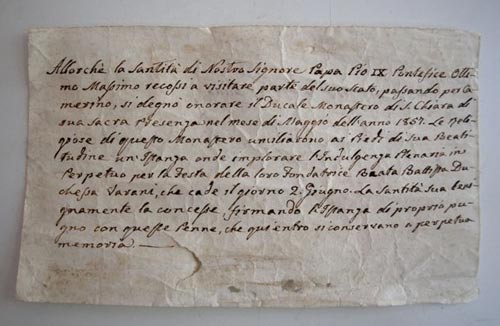 Allorchè la Santità di Nostro Signore Papa Pio IX Pontefice Otti
mo Massimo recossi a visitare parte del suo Stato, passando per Ca
merino, si degnò onorare il Ducale Monastero di S. Chiara di
sua Sacra Presenza nel mese di Maggio dell'anno 1857. Le Reli
giose di questo Monastero umiliarono ai Piedi di Sua Beati
tudine un'Istanza onde implorare l'Indulgenza Plenaria in
Perpetuo per la Festa della loro Fondatrice Beata Battista Du
chessa Varani, che cade il giorno 2. Giugno. La Santità Sua beni
gnamente la concesse firmando l'Istanza di proprio pu
gno con queste Penne, che qui entro si conservano a perpetua
memoria.